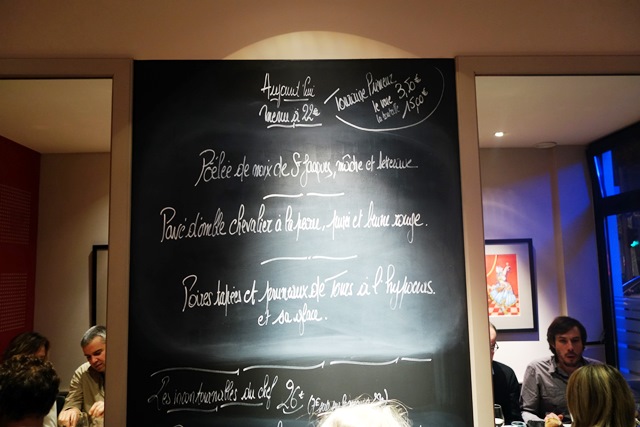 Aujourd'hui
Menu à 22€
Touraine Primeur
le verre 3,50€
la bouteille 15,00€
Poêlée de noix de St Jacques, mâche et betterave.
Pavé d'omble chevalier à la peau, panais et beurre rouge.
Poires tapées et pruneaux de Tours à l'hypocras
et sa glace.
Les incontournables du chef 26€